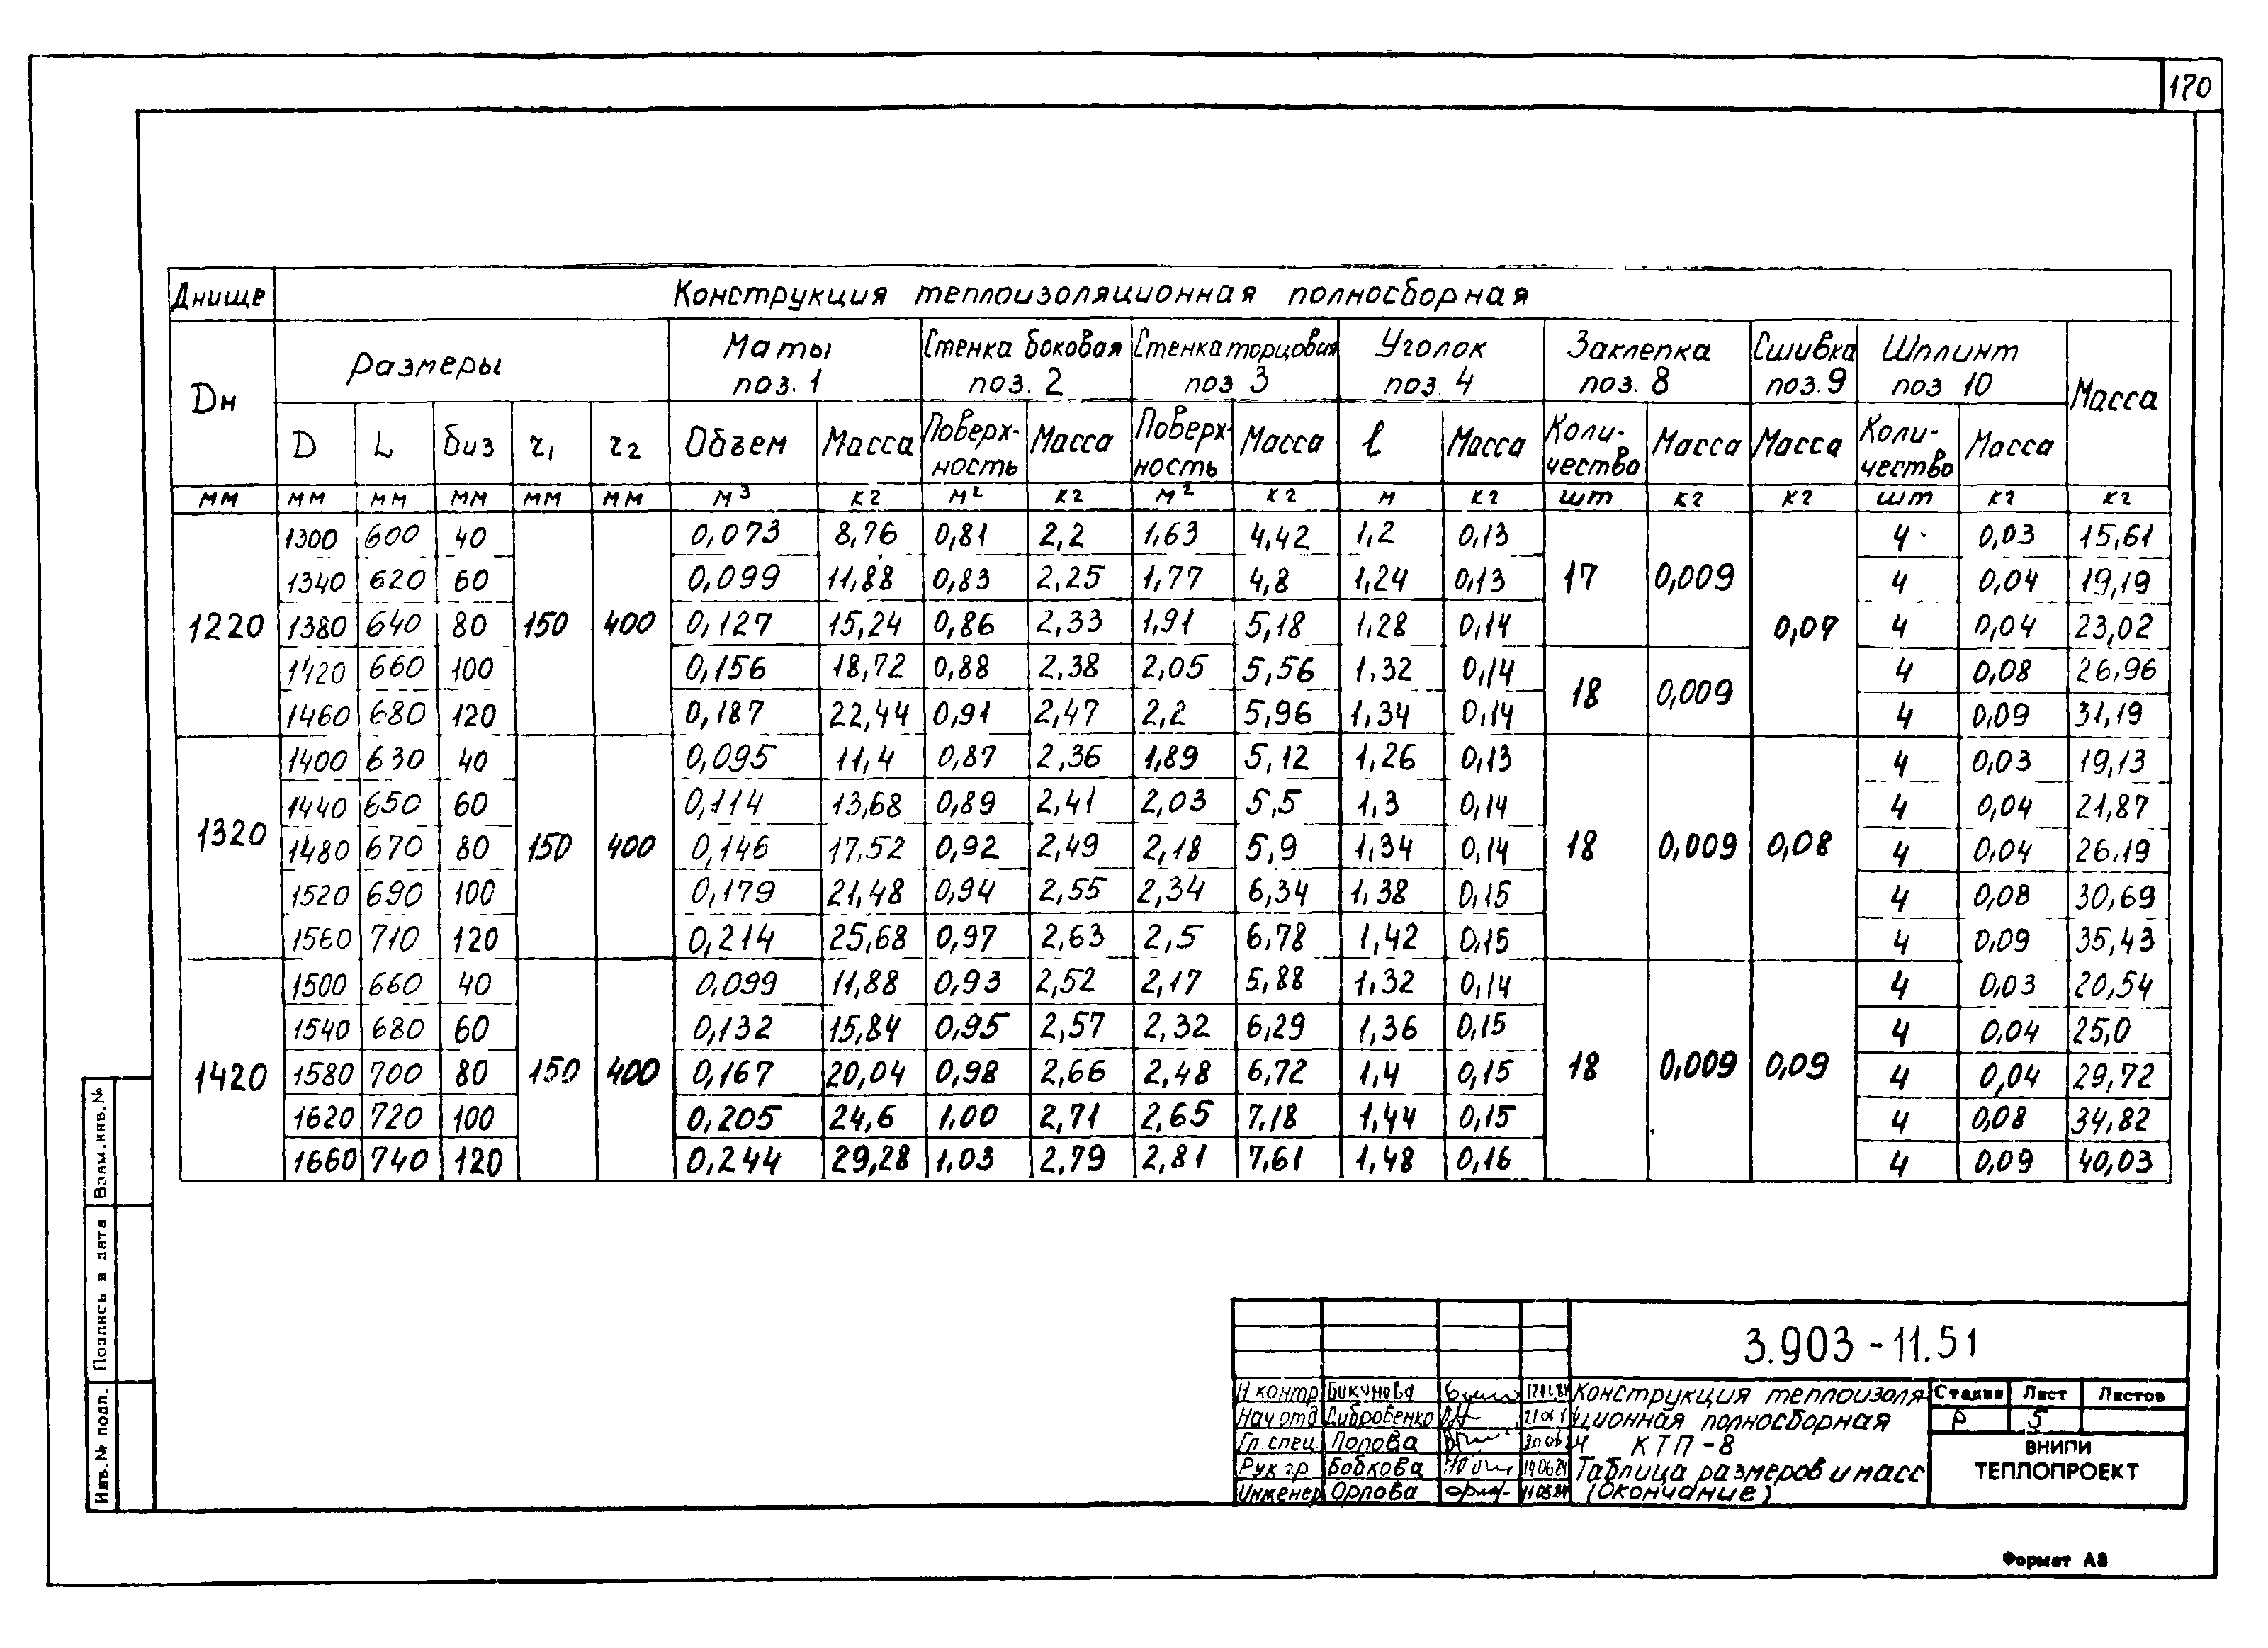 170
Днище Конструкция теплоизоляционная полносборная
Dн Размеры Маты поз. 1 Стенка боковая поз. 2 Стенка торцовая поз 3 Уголок поз. 4 Заклепка поз. 8 Сшивка поз. 9 Шплинт поз 10 Масса
D L биз r1 r2 Объем Масса Поверх-ность Масса Поверх-ность Масса l Масса Коли-чество Масса Масса Коли-чество Масса
мм мм мм мм мм мм м³ кг м² кг м² кг м кг шт кг кг шт кг кг
1300 600 40 0,073 8,76 0,81 2,2 1,63 4,42 1,2 0,13 4 0,03 15,61
1340 620 60 0,099 11,88 0,83 2,25 1,77 4,8 1,24 0,13 17 0,009 4 0,04 19,19
1220 1380 640 80 150 400 0,127 15,24 0,86 2,33 1,91 5,18 1,28 0,14 0,07 4 0,04 23,02
1420 660 100 0,156 18,72 0,88 2,38 2,05 5,56 1,32 0,14 18 0,009 4 0,08 26,96
1460 680 120 0,187 22,44 0,91 2,47 2,2 5,96 1,34 0,14 4 0,09 31,19
1400 630 40 0,095 11,4 0,87 2,36 1,89 5,12 1,26 0,13 4 0,03 19,13
1440 650 60 0,114 13,68 0,89 2,41 2,03 5,5 1,3 0,14 4 0,04 21,87
1320 1480 670 80 150 400 0,146 17,52 0,92 2,49 2,18 5,9 1,34 0,14 18 0,009 0,08 4 0,04 26,19
1520 690 100 0,179 21,48 0,94 2,55 2,34 6,34 1,38 0,15 4 0,08 30,69
1560 710 120 0,214 25,68 0,97 2,63 2,5 6,78 1,42 0,15 4 0,09 35,43
1500 660 40 0,099 11,88 0,93 2,52 2,17 5,88 1,32 0,14 4 0,03 20,54
1540 680 60 0,132 15,84 0,95 2,57 2,32 6,29 1,36 0,15 4 0,04 25,0
1420 1580 700 80 150 400 0,167 20,04 0,98 2,66 2,48 6,72 1,4 0,15 18 0,009 0,09 4 0,04 29,72
1620 720 100 0,205 24,6 1,00 2,71 2,65 7,18 1,44 0,15 4 0,08 34,82
1660 740 120 0,244 29,28 1,03 2,79 2,81 7,61 1,48 0,16 4 0,09 40,03
Взам.инв.№
Подпись и дата
Инв.№ подл.
3.903-11.51
Н контр Бикунова
Нач отд Дибровенко
Гл. спец. Попова
Рук гр Бобкова 14.06.84
Инженер Орлова
Конструкция теплоизоля-
ционная полносборная
КТП-8
Таблица размеров и масс
(окончание)
Стадия Лист Листов
Р 5
ВНИПИ
ТЕПЛОПРОЕКТ
Формат А3